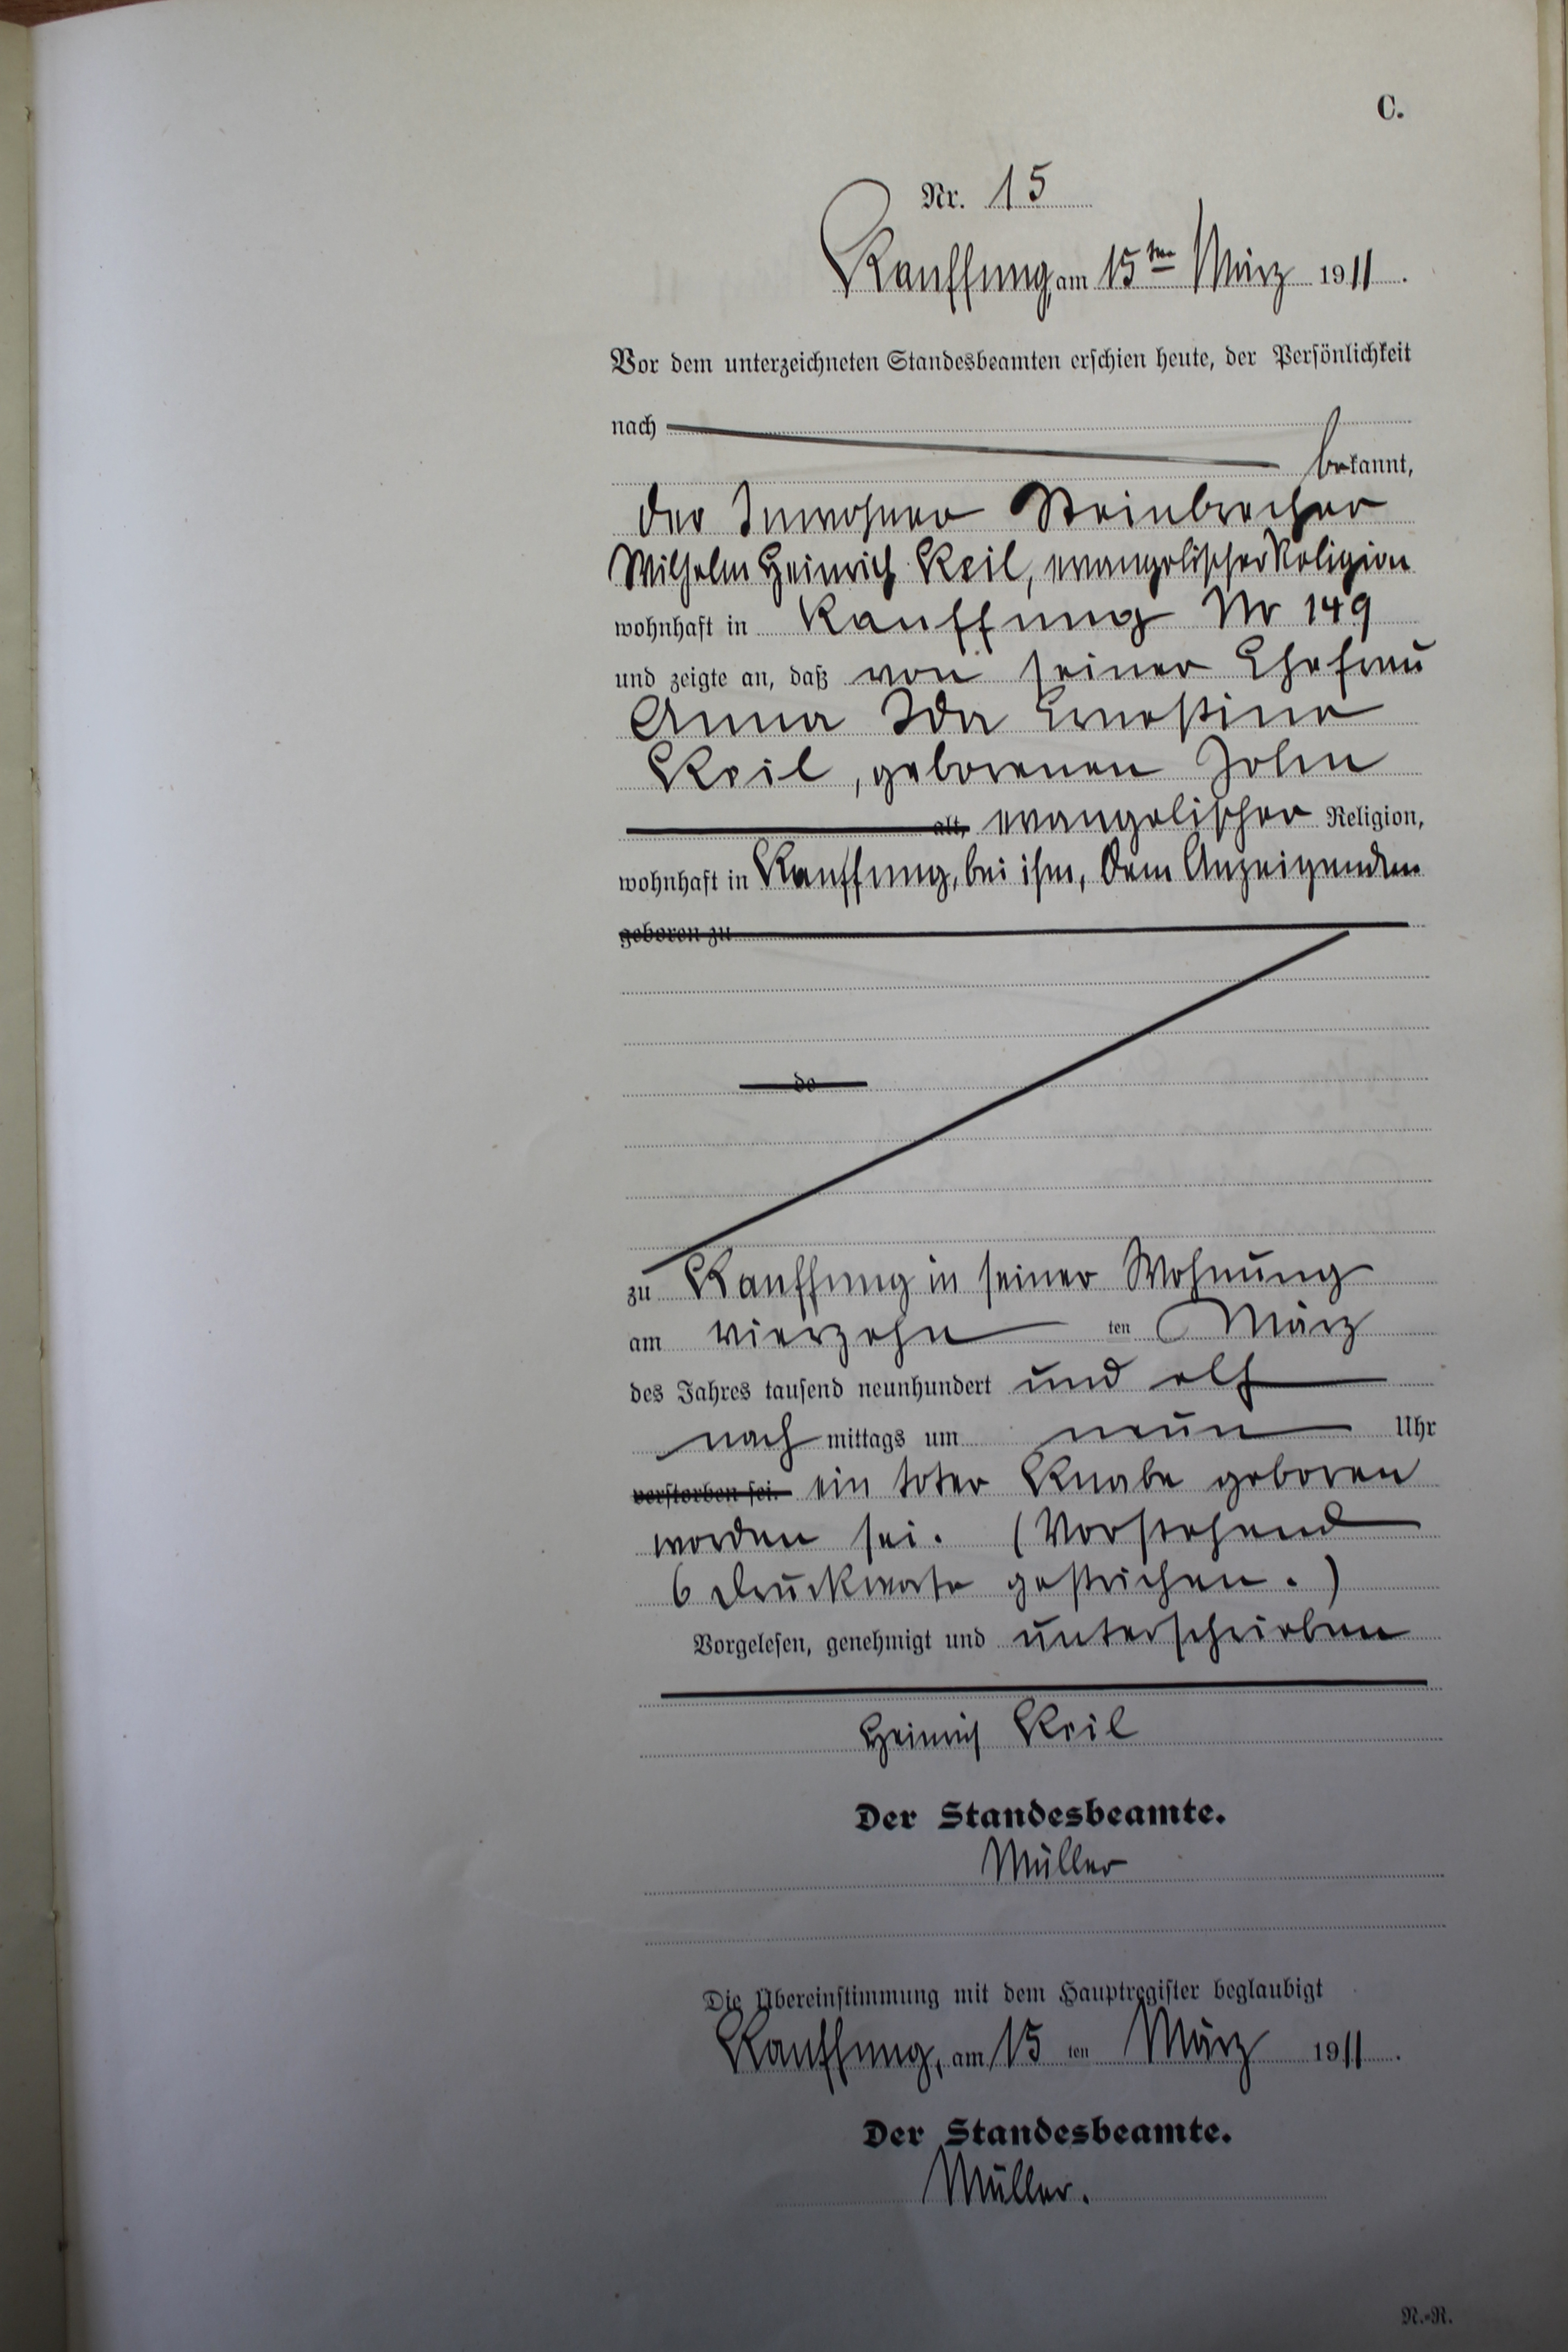 C.
Nr. 15
Kauffung, am 15ten März 1911.
Vor dem unterzeichneten Standesbeamten erschien heute, der Persönlichkeit
nach
bekannt,
der Inwohner Steinbrecher
Wilhelm Heinrich Keil, evangelischer Religion
wohnhaft in Kauffung Nr 149
und zeigte an, daß von seiner Ehefrau
Anna Ida Ernestine
Keil, geborenen John
alt, evangelischer Religion,
wohnhaft in Kauffung, bei ihm, dem Anzeigenden
geboren zu
de
zu Kauffung in seiner Wohnung
am vierzehn ten März
des Jahres tausend neunhundert und elf
nach mittags um neun Uhr
verstorben sei. ein toter Knabe geboren
worden sei. (Vorstehend
6 Druckworte gestrichen.)
Vorgelesen, genehmigt und unterschrieben
Heinrich Keil
Der Standesbeamte.
Müller
Die Übereinstimmung mit dem Hauptregister beglaubigt
Kauffung, am 15 ten März 1911.
Der Standesbeamte.
Müller.
N.-R.